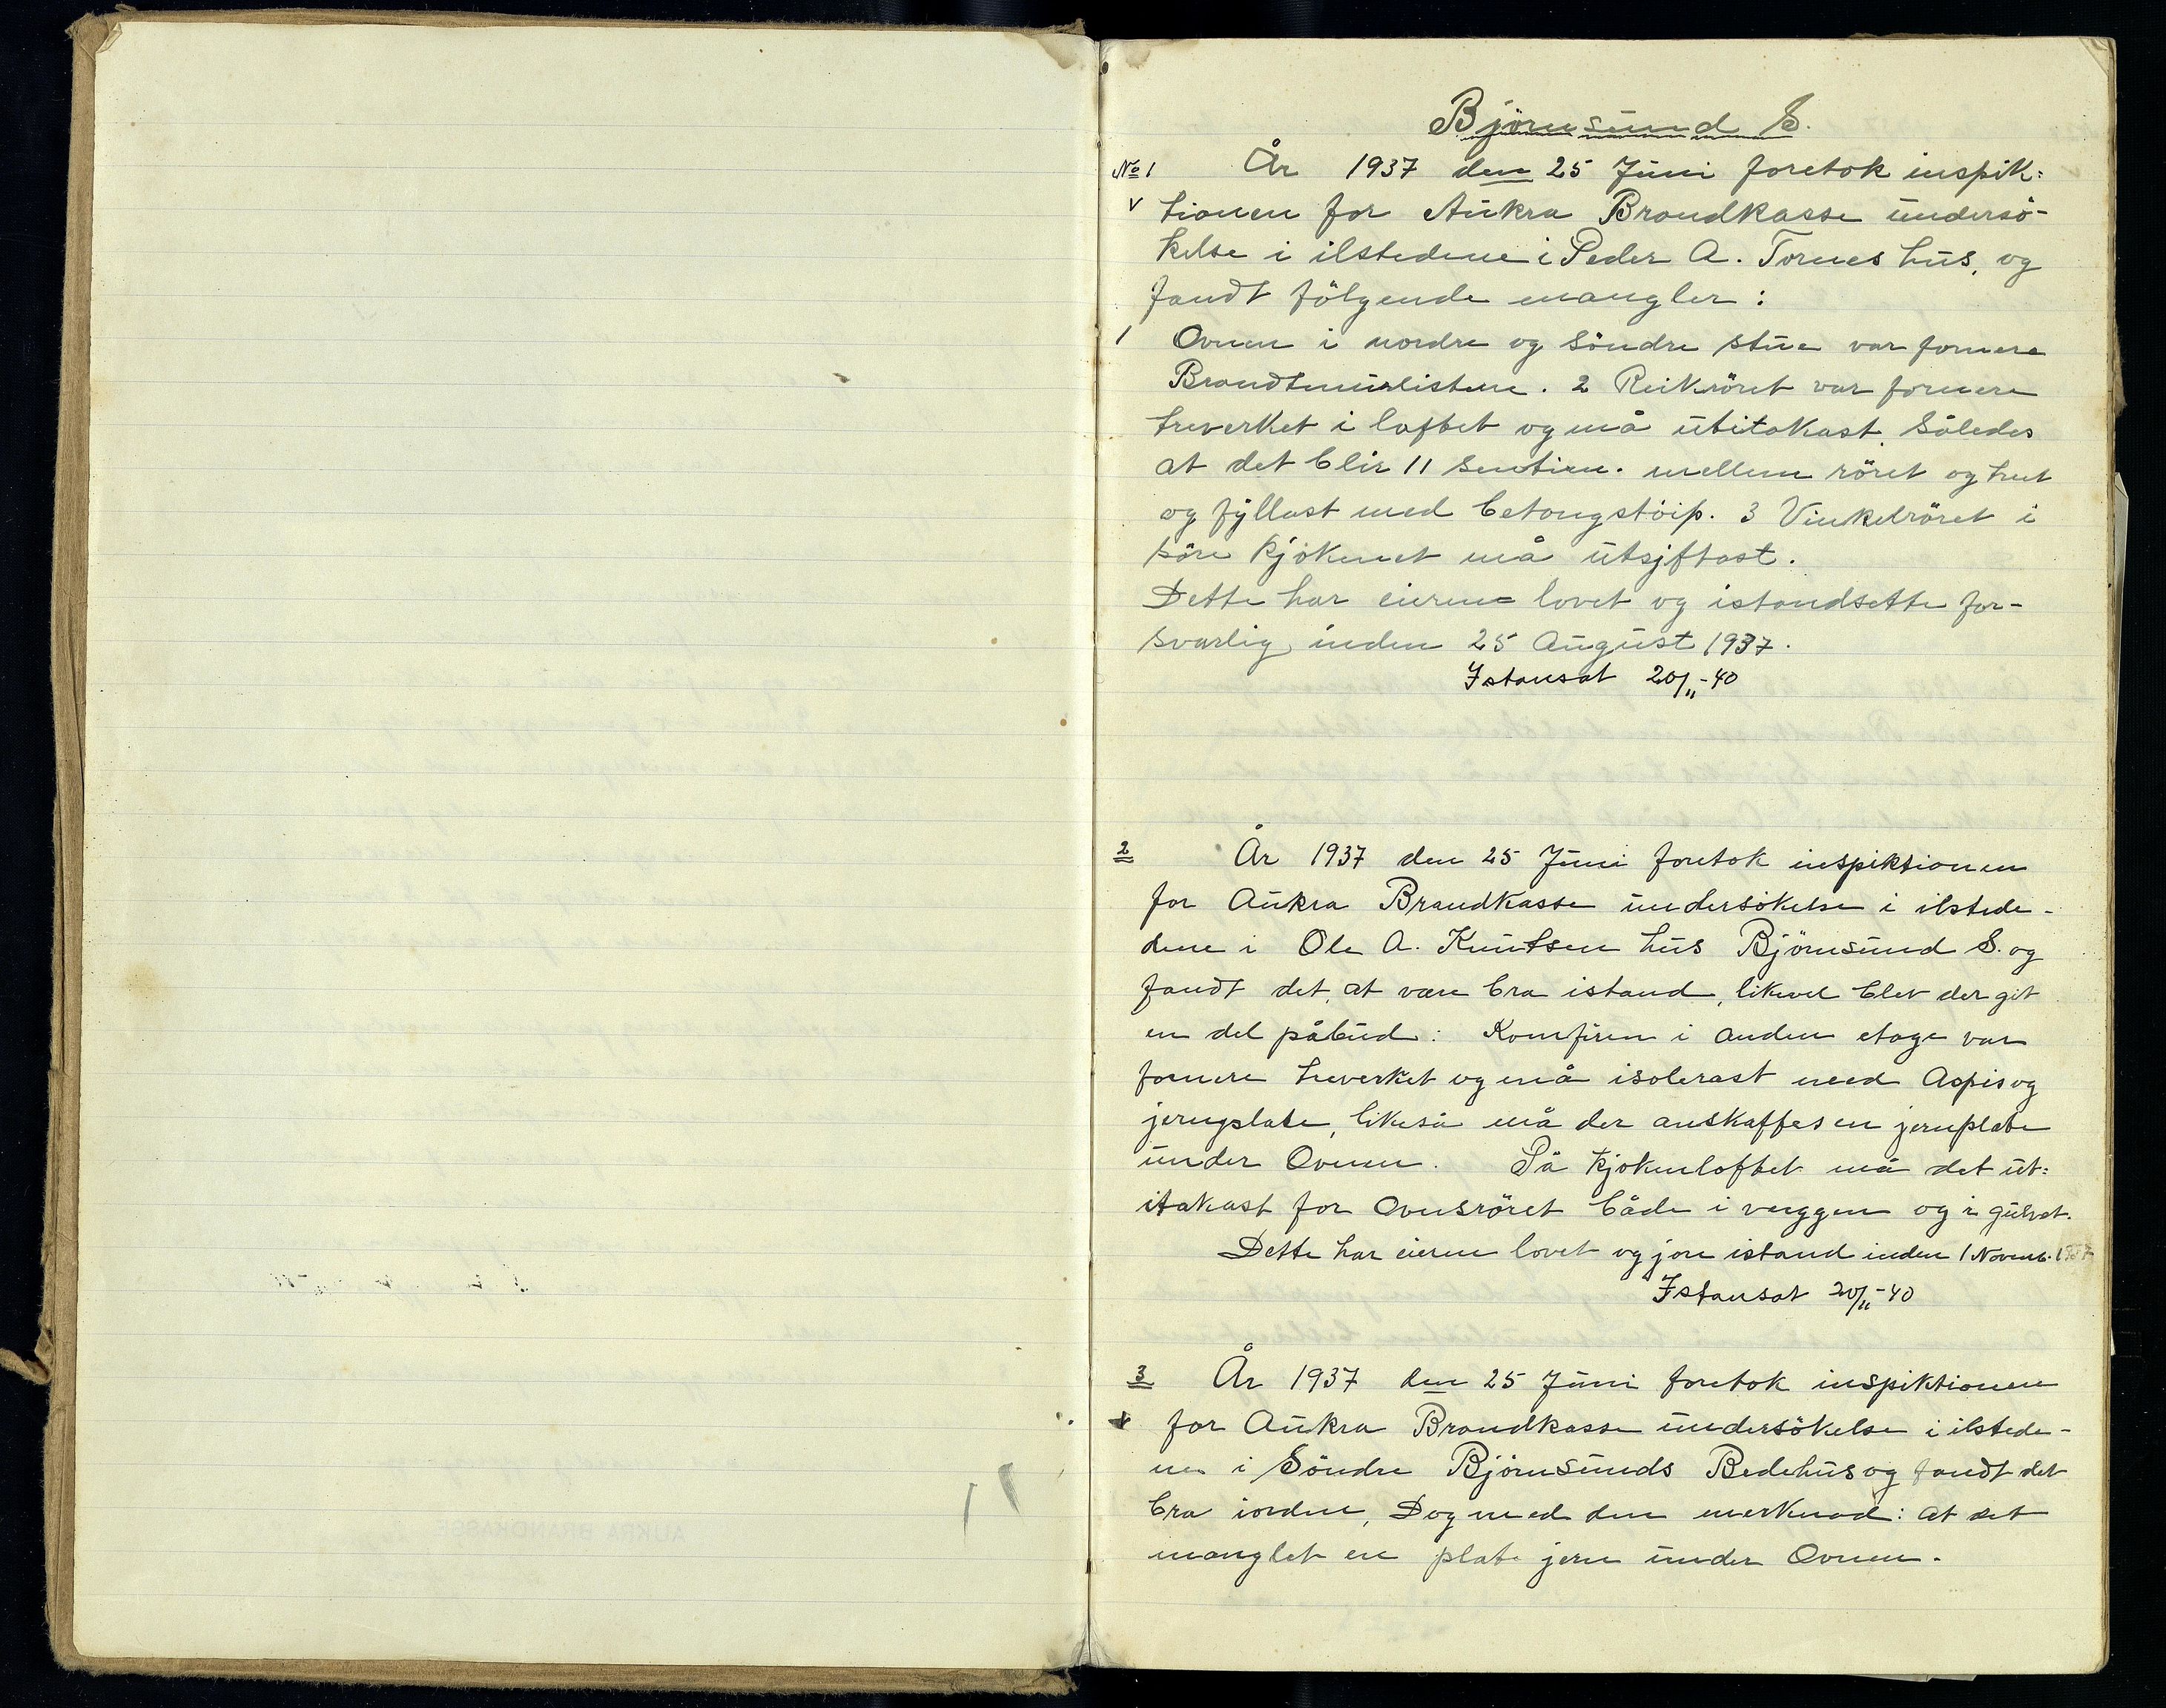 Björnsund S.
No 1 År 1937 den 25 Juni foretok inspik=
v tionen for Aukra Brandkasse undersö-
kelse i ilstedene i Peder A. Tornes hus, og
fandt fölgende mangler:
1 Ovnen i nordre og söndre stue var fornere
Brandtmurlistene. 2 Reikröret var fornere
treverket i loftet og må utitakast. Således
at det blir 11 sentim. mellem röret og treet
og fyllast med betongstöip. 3 Vinkelröret i
söre kjökenet må utsjftast.
Dette har eieren lovet og istandsette for-
svarlig inden 25 August 1937.
Istansat 20/11-40
2 År 1937 den 25 Juni foretok inspiktionen
for Aukra Brandkasse undersökelse i ilstede-
dene i Ole A. Knutsen hus Björnsund S. og
fandt det, at være bra istand, likevel blev der git
en del påbud: Komfiren i anden etage var
fornere treverket og må isolerast med Aspis og
jernplate, likeså må der anskaffes en jernplate
under Ovnen. På kjökenloftet må det ut=
itakast for Ovnsröret både i veggen og i gulvet.
Dette har eieren lovet og jøre istand inden 1 Novemb. 1937
Istansat 20/11-40
3 År 1937 den 25 Juni foretok inspiktionen
v for Aukra Brandkasse undersökelse i ilstede-
ne i Söndre Björnsunds Bedehus og fandt det
bra iorden, Dog med den merknad: at det
manglet en plate jern under Ovnen.